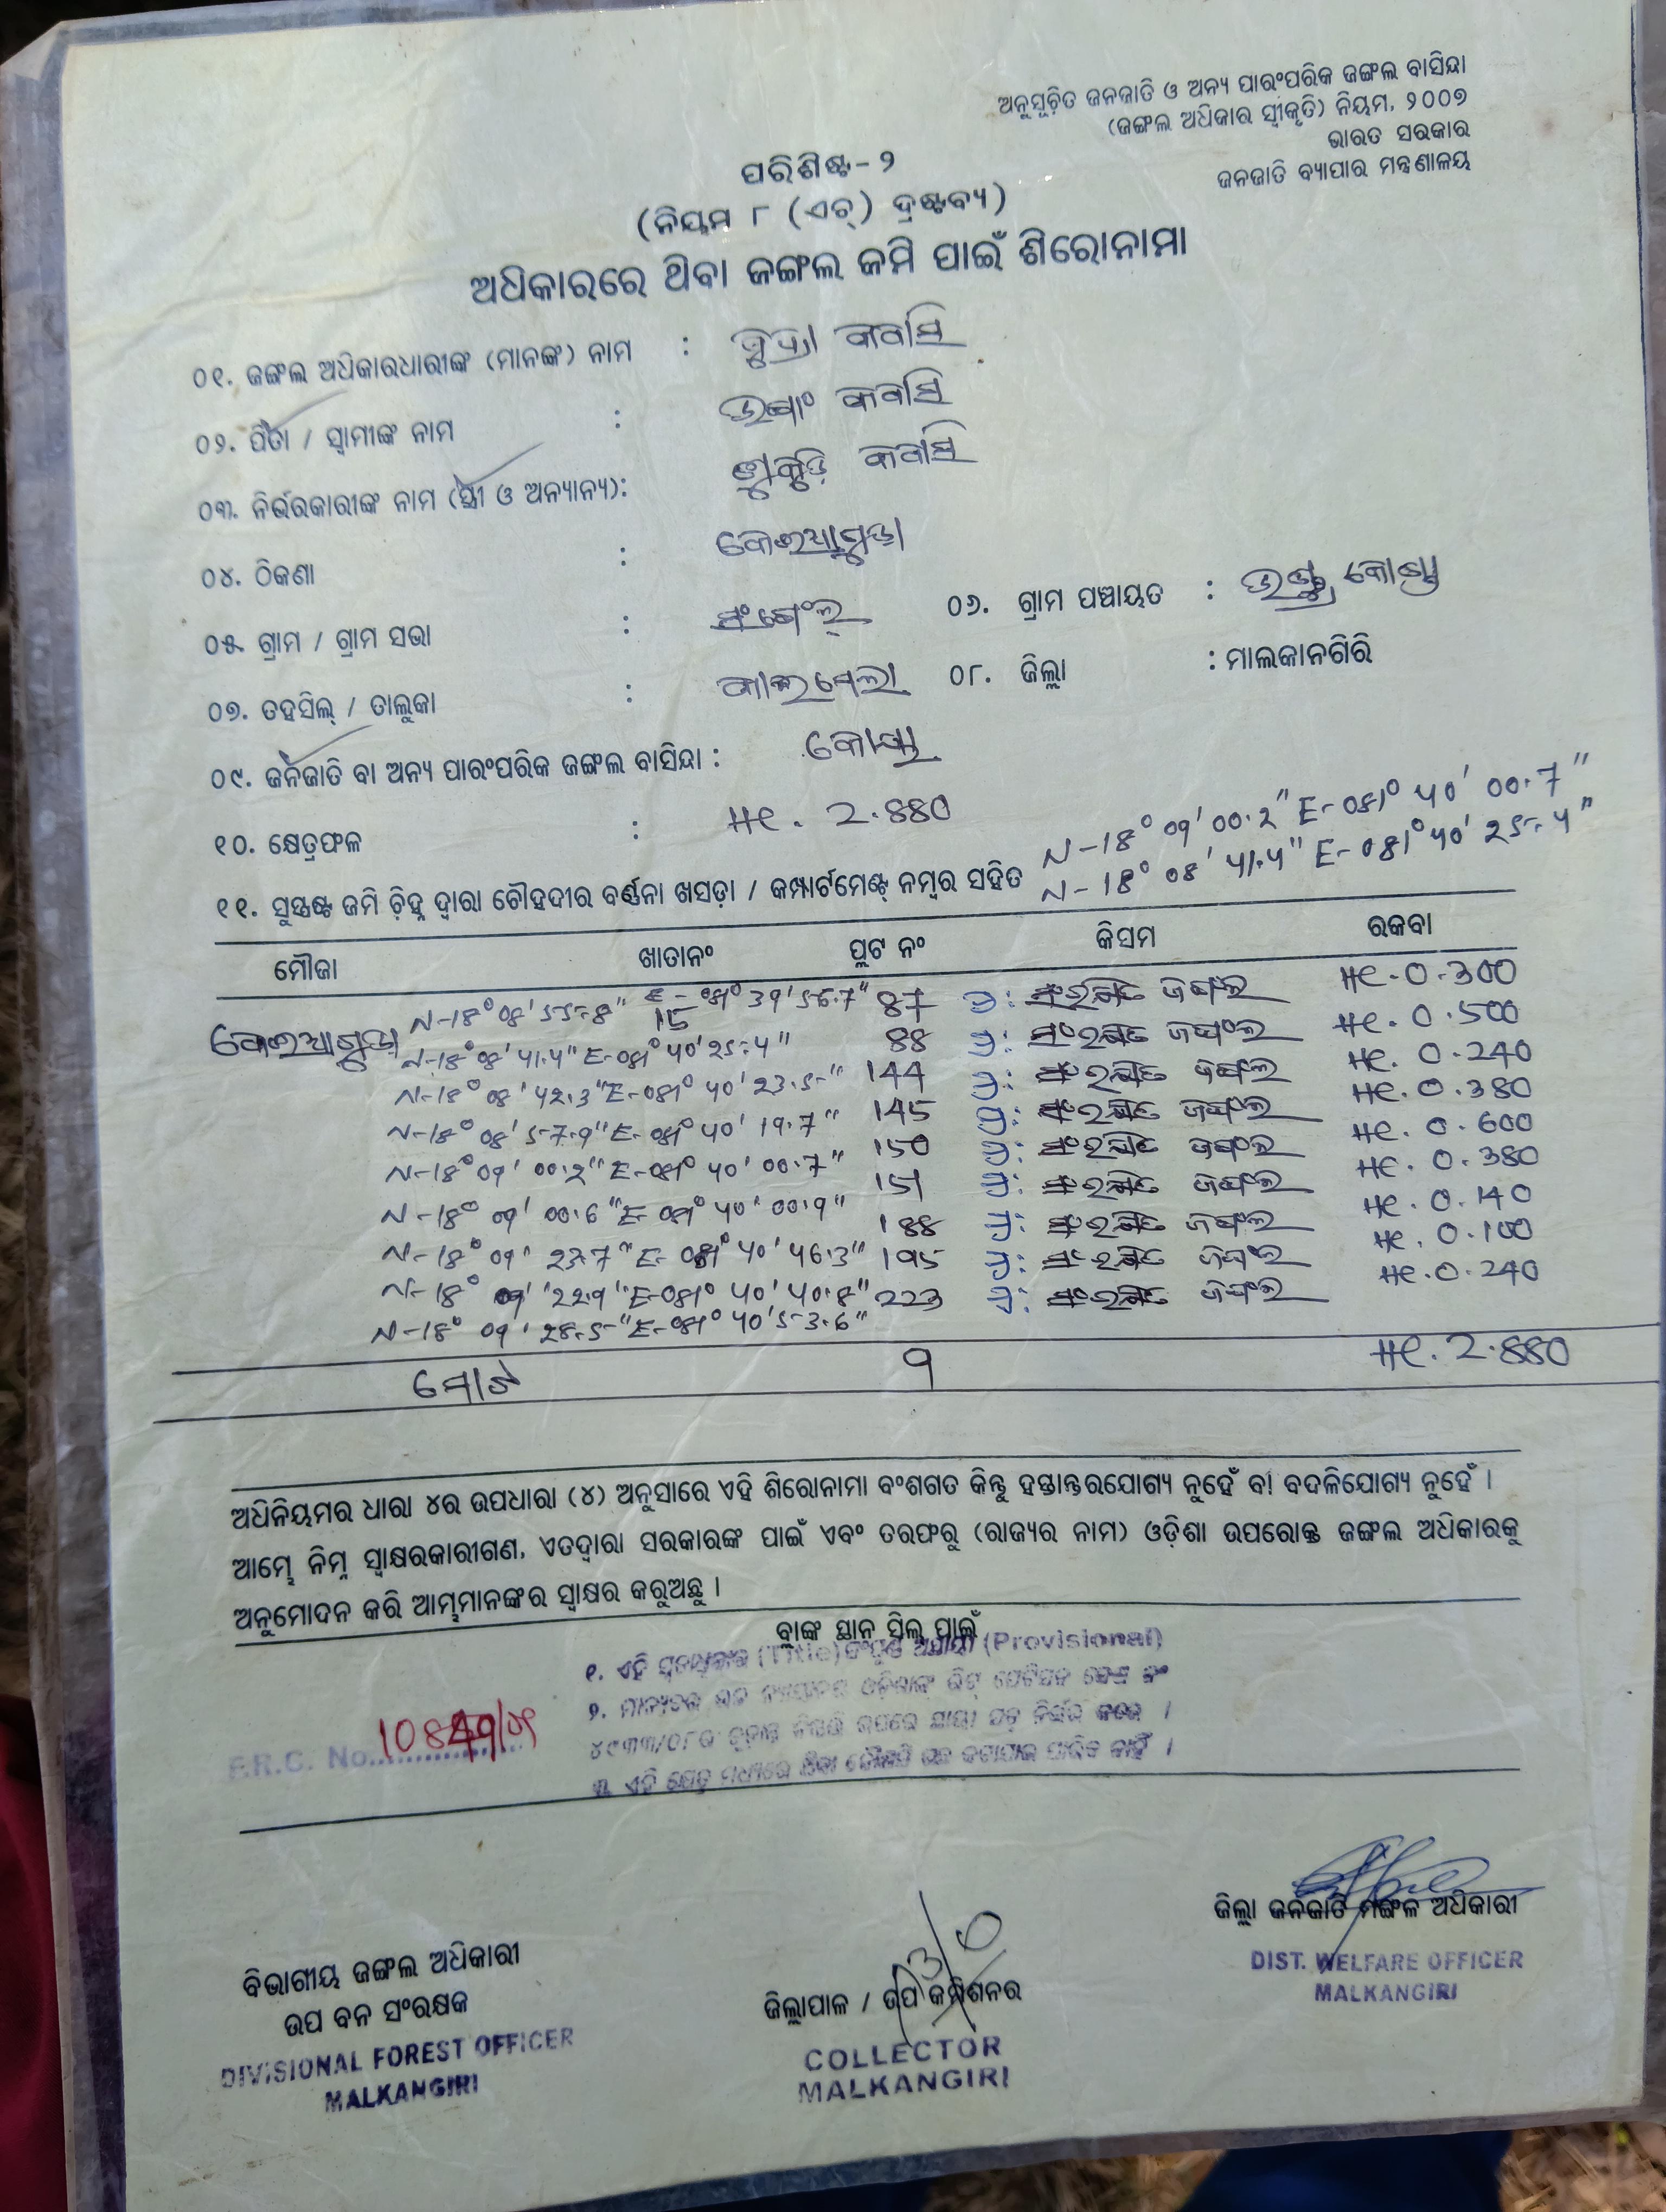 ଅନୁସୂଚିତ ଜନଜାତି ଓ ଅନ୍ୟ ପାରଂପରିକ ଜଙ୍ଗଲ ବାସିନ୍ଦା
(ଜଙ୍ଗଲ ଅଧିକାର ସ୍ୱୀକୃତି) ନିୟମ, ୨୦୦୭
ଭାରତ ସରକାର
ଜନଜାତି ବ୍ୟାପାର ମନ୍ତ୍ରଣାଳୟ
ପରିଶିଷ୍ଟ-୨
(ନିୟମ ୮ (ଏଚ୍) ଦ୍ରଷ୍ଟବ୍ୟ)
ଅଧିକାରରେ ଥିବା ଜଙ୍ଗଲ ଜମି ପାଇଁ ଶିରୋନାମା
୦୧. ଜଙ୍ଗଲ ଅଧିକାରଧାରୀଙ୍କ (ମାନଙ୍କ) ନାମ : କବାସି
୦୨. ପିତା / ସ୍ୱାମୀଙ୍କ ନାମ : କବାସି
୦୩. ନିର୍ଭରକାରୀଙ୍କ ନାମ (ସ୍ତ୍ରୀ ଓ ଅନ୍ୟାନ୍ୟ): କବାସି
୦୪. ଠିକଣା :
୦୫. ଗ୍ରାମ / ଗ୍ରାମ ସଭା : ୦୬. ଗ୍ରାମ ପଞ୍ଚାୟତ :
୦୭. ତହସିଲ୍ / ତାଲୁକା : ୦୮. ଜିଲ୍ଲା : ମାଲକାନଗିରି
୦୯. ଜନଜାତି ବା ଅନ୍ୟ ପାରଂପରିକ ଜଙ୍ଗଲ ବାସିନ୍ଦା : କୋୟା
୧୦. କ୍ଷେତ୍ରଫଳ : He. 2.880
N-18° 09' 00.2" E-081° 40' 00.7"
୧୧. ସୁସ୍ପଷ୍ଟ ଜମି ଚିହ୍ନ ଦ୍ୱାରା ଚୌହଦୀର ବର୍ଣ୍ଣନା ଖସଡ଼ା / କମ୍ପାର୍ଟମେଣ୍ଟ୍ ନମ୍ବର ସହିତ N-18° 08' 41.4" E-081° 40' 25.4"
ମୌଜା ଖାତାନଂ ପ୍ଲଟ ନଂ କିସମ ରକବା
N-18° 08' 55.8" E-081° 39' 56.7" 87 ପ୍ର: ସଂରକ୍ଷିତ ଜଙ୍ଗଲ He. 0.300
115
N-18° 08' 41.4" E-081° 40' 25.4" 88 ପ୍ର: ସଂରକ୍ଷିତ ଜଙ୍ଗଲ He. 0.500
N-18° 08' 42.3" E-081° 40' 23.5" 144 ପ୍ର: ସଂରକ୍ଷିତ ଜଙ୍ଗଲ He. 0.240
N-18° 08' 57.9" E-081° 40' 19.7" 145 ପ୍ର: ସଂରକ୍ଷିତ ଜଙ୍ଗଲ He. 0.380
N-18° 09' 00.2" E-081° 40' 00.7" 150 ପ୍ର: ସଂରକ୍ଷିତ ଜଙ୍ଗଲ He. 0.600
N-18° 09' 00.6" E-081° 40' 00.9" 151 ପ୍ର: ସଂରକ୍ଷିତ ଜଙ୍ଗଲ He. 0.380
N-18° 09' 23.7" E-081° 40' 46.3" 188 ପ୍ର: ସଂରକ୍ଷିତ ଜଙ୍ଗଲ He. 0.140
N-18° 09' 22.9" E-081° 40' 40.8" 195 ପ୍ର: ସଂରକ୍ଷିତ ଜଙ୍ଗଲ He. 0.100
N-18° 09' 28.5" E-081° 40' 53.6" 223 ପ୍ର: ସଂରକ୍ଷିତ ଜଙ୍ଗଲ He. 0.240
ମୋଟ 9 He. 2.880
ଅଧିନିୟମର ଧାରା ୪ର ଉପଧାରା (୪) ଅନୁସାରେ ଏହି ଶିରୋନାମା ବଂଶଗତ କିନ୍ତୁ ହସ୍ତାନ୍ତରଯୋଗ୍ୟ ନୁହେଁ ବା ବଦଳିଯୋଗ୍ୟ ନୁହେଁ ।
ଆମ୍ଭେ ନିମ୍ନ ସ୍ୱାକ୍ଷରକାରୀଗଣ, ଏତଦ୍ଵାରା ସରକାରଙ୍କ ପାଇଁ ଏବଂ ତରଫରୁ (ରାଜ୍ୟର ନାମ) ଓଡ଼ିଶା ଉପରୋକ୍ତ ଜଙ୍ଗଲ ଅଧିକାରକୁ
ଅନୁମୋଦନ କରି ଆମ୍ଭମାନଙ୍କର ସ୍ୱାକ୍ଷର କରୁଅଛୁ ।
ବ୍ଲାଙ୍କ ସ୍ଥାନ ସିଲ୍ ପାଇଁ
୧. ଏହି (Title) (Provisional)
୨.
୪୯୩୩/୦୮ର
୩. ଏହି
F.R.C. No.
ଜିଲ୍ଲା ଜନଜାତି ମଙ୍ଗଳ ଅଧିକାରୀ
DIST. WELFARE OFFICER
MALKANGIRI
ବିଭାଗୀୟ ଜଙ୍ଗଲ ଅଧିକାରୀ
ଉପ ବନ ସଂରକ୍ଷକ
DIVISIONAL FOREST OFFICER
MALKANGIRI
ଜିଲ୍ଲାପାଳ / ଉପ କମିଶନର
COLLECTOR
MALKANGIRI